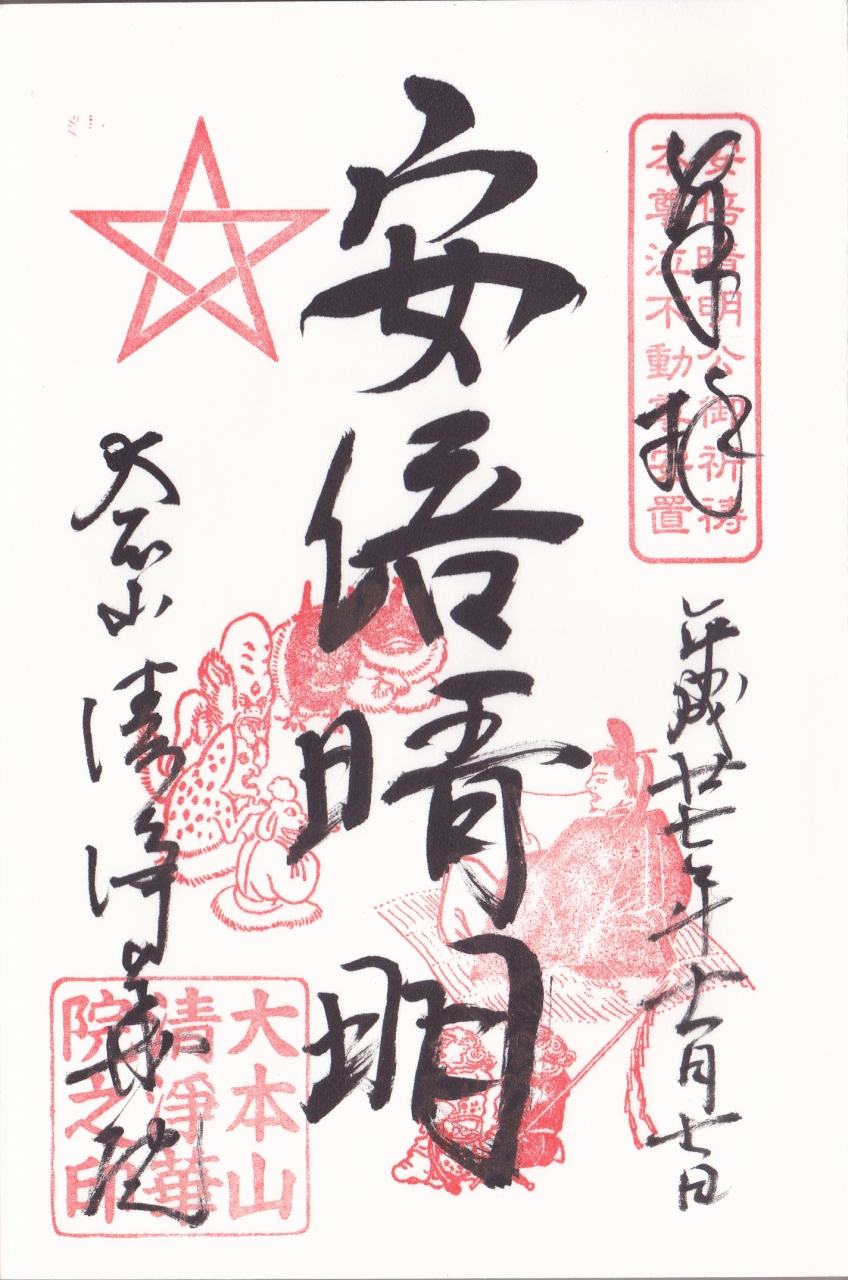 奉拝
安倍晴明公御祈祷
本尊泣不動尊安置
平成廿七年十一月七日
安倍晴明
大本山 清浄華院
大本山
清浄華
院之印